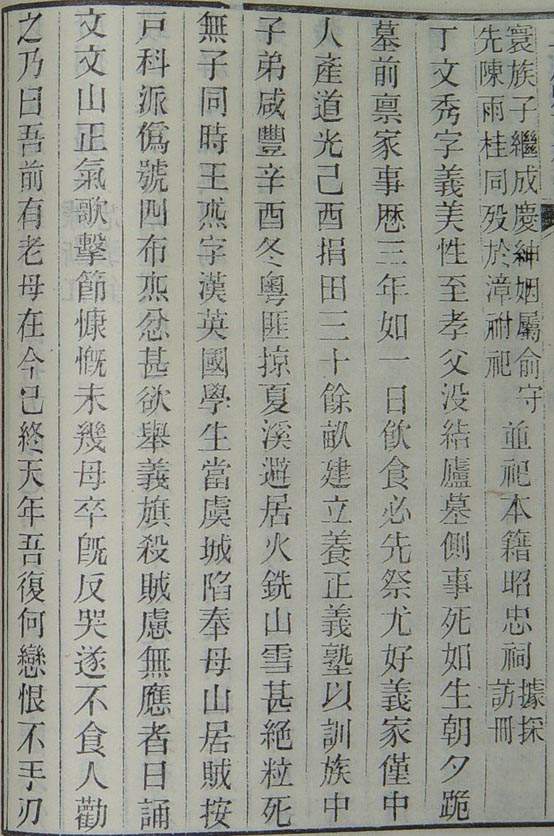 寰族子繼成慶紳姻屬俞守
先陳雨桂同歿於漳祔祀
並祀本籍昭忠祠
據採
訪冊
丁文秀字義美性至孝父没結廬墓側事死如生朝夕跪
墓前禀家事歴三年如一日飲食必先祭尤好義家僅中
人產道光己酉捐田三十餘畝建立養正義塾以訓族中
子弟咸豐辛酉冬粵匪掠夏溪避居火銑山雪甚絶粒死
無子同時王字漢英國學生當虞城陷奉母山居賊按
戸科派僞號四布忿甚欲舉義旗殺賊慮無應者日誦
文文山正氣歌擊節慷慨未幾母卒旣反哭遂不食人勸
之乃曰吾前有老母在今已終天年吾復何戀恨不手刃